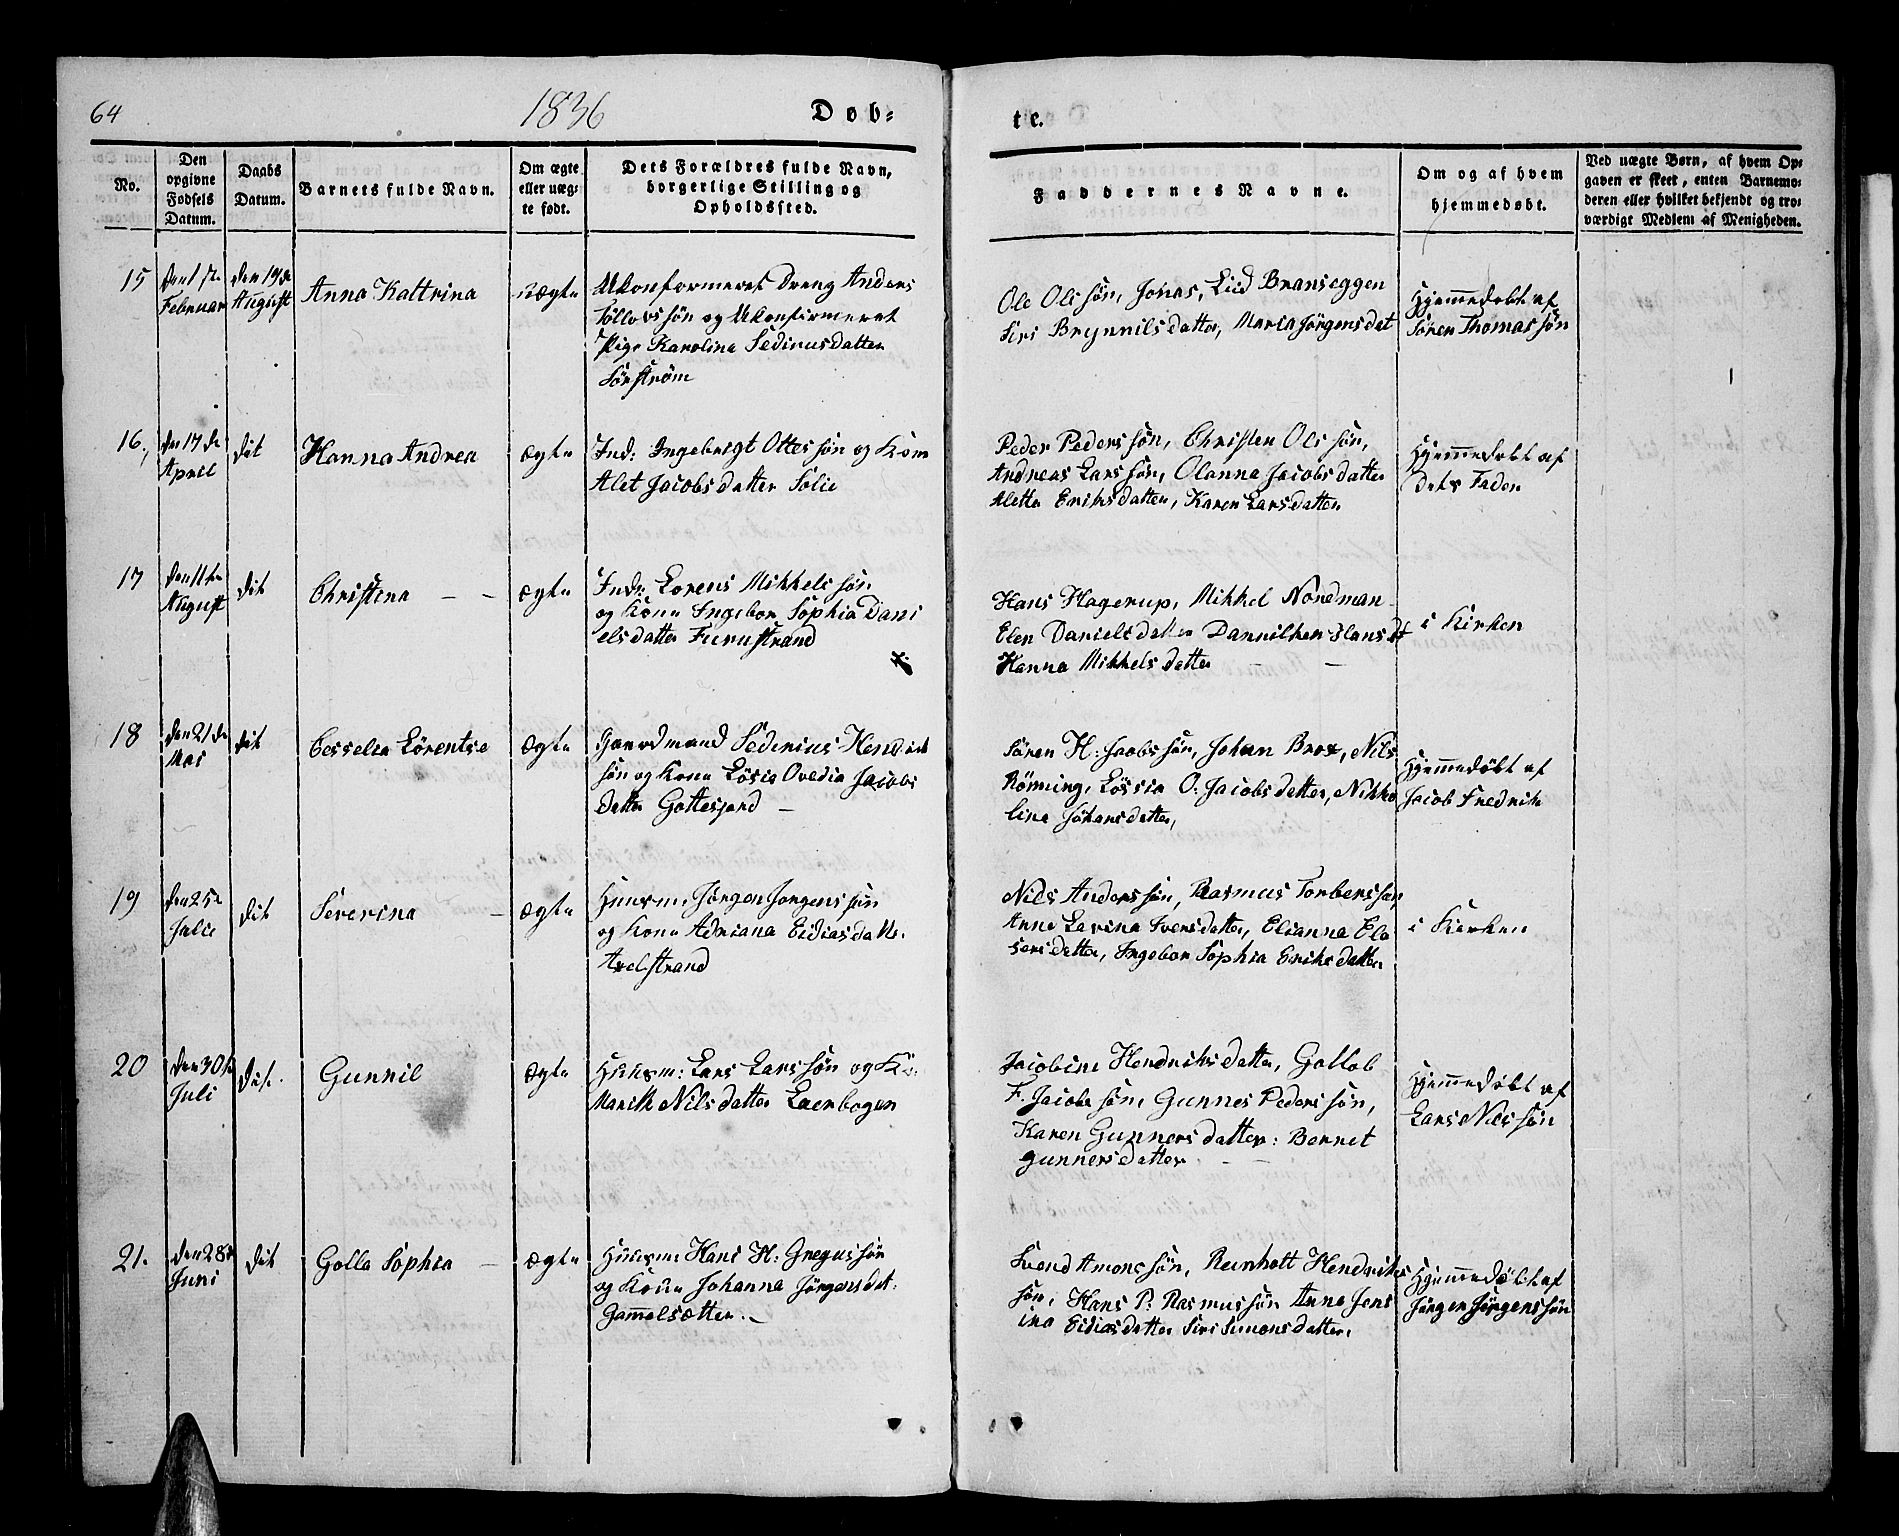 64
1836
Døb=
te.
No.
Den
opgivne
Fødsels
Datum.
Daabs
Datum.
Barnets fulde Navn.
Om ægte
eller uæg-
te født.
Dets Forældres fulde Navn,
borgerlige Stilling og
Opholdssted.
Faddernes Navne.
Om og af hvem
hjemmedøbt.
Ved uægte Børn, af hvem Op-
gaven er skeet, enten Barnemo-
deren eller hvilket bekjendt og tro-
værdigt Medlem af Menigheden.
15
Februar
den 19de
August
Anna Kattrina
uægte
Ukonformeret Dreng Anders
Tollovssøn og Ukonfirmeret
Pige Karolina Sedinusdatter
Sørstrøm
Ole Olssøn, Jonas, Lud Branseggen
Siri Brynnilsdatter, Maria Jörgensdat
Hjemmedøbt af
Sören Thomassøn
16.
den 17de
April
dit
Hanna Andrea
ægte
Ind: Ingebrigt Ottessøn og Kone
Alet Jacobsdatter Solie
Peder Pederssøn, Christen Olssøn,
Andreas Larssøn, Olanna Jacobsdatter
Aletta Eriksdatter, Karen Larsdatter
Hjemmedøbt af
dets Fader
17
den 11te
August
dit
Christina
ægte
Indr: Lorens Mikkelssøn
og Kone Ingebor Sophia Dani
elsdatter Furustrand
Hans Hagerup, Mikkel Nordman
Elen Danielsdatter Dannilken Hansdt
Hanna Mikkelsdatter
i Kirken
18
den 21de
Mai
dit
Cesselia Lörentse
ægte
Gaardmand Sedenius Hendrik
søn og Kone Lösia Ovedia Jacobs
datter Gottesjord
Sören H: Jacobssøn, Johan Brox, Nils
Rönning, Lössia O. Jacobsdatter, Nikko
line Johansdatter,
Hjemmedøbt af
Jacob Fredrik
19
den 25de
Julii
dit
Severina
ægte
Huusm: Jørgen Jørgenssøn
og Kone Adriana Eidiasdatter
Axelstrand
Nils Anderssøn, Rasmus Torberssøn
Anne Lavina Iversdatter, Elianna Ela
sersdatter, Ingebor Sophia Eriksdatter
i Kirken
20
den 30te
Juli
dit.
Gunnil
ægte
Huusm: Lars Larssøn og Ko:
Marith Nilsdatter Laenbogen
Jacobine Hendriksdatter, Gollob
F. Jacobssøn, Gunnes Pederssøn,
Karen Gunnersdatter: Bernet
Gunnersdatter
Hjemmedøbt af
Lars Nilssøn
21.
den 28de
Juni
dit
Golla Sophia
ægte
Huusm: Hans H: Gregussøn
og Kone Johanna Jörgensdat:
Gammelsætter.
Svend Amonssøn, Reinholt Hendriks
søn, Hans P: Rasmussøn Anna Jens
ina Eidiasdatter Siri Simonsdatter,
Hjemmedöbt af
Jörgen Jörgenssøn